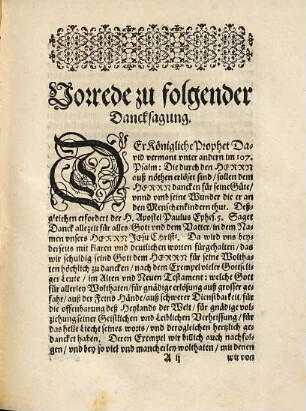 Vorrede zu folgender
Dancksagung.
DEr Königliche Prophet Da-
vid vermant vnter andern im 107.
Psalm: Die durch den HERRN
auß nöhten erlöset sind / sollen dem
HERRN dancken für seine Güte/
vnnd vmb seine Wunder die er an
den Menschenkindern thut. Deß-
gleichen erfordert der H. Apostel Paulus Ephes. 5. Saget
Danck allezeit für alles / Gott vnd dem Vatter / in dem Na-
men vnsers HERRN Jesu Christi. Da wird von bey-
derseits mit klaren vnd deutlichen worten fürgehalten / das
wir schuldig seind Gott dem HERRN für seine Wolthä-
ten höchlich zu dancken / nach dem Exempel vieler Gottseli-
ger Leute / im Alten vnd Neuen Testament: welche Gott
für allerley Wolthaten / für gnädige erlösung auß grosser ge-
fahr / auß der Feind Hände / auß schwerer Dienstbarkeit, für
die offenbarung deß Heylands der Welt / für gnädige vol-
ziehung seiner Geistlichen vnd Leiblichen Verheissung / für
das helle Liecht seines worts / vnd dergleichen hertzlich ge-
dancket haben. Deren Exempel wir billich auch nachfol-
gen / vnd bey so viel vnd mancherley wolthaten / mit denen
A ij wir von